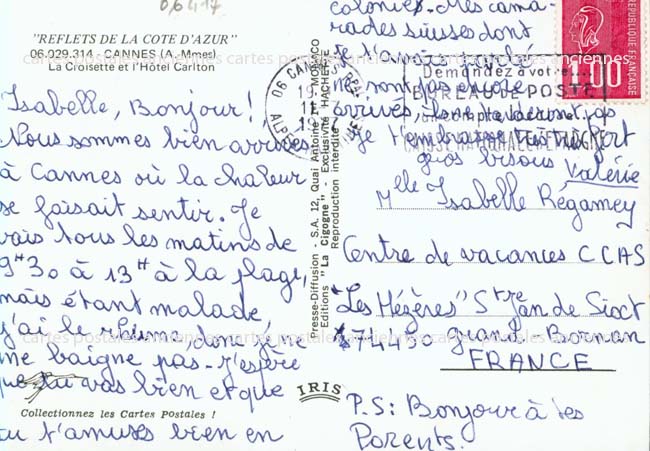 06417
"REFLETS DE LA COTE D'AZUR"
06.029.314 - CANNES (A.-Mmes)
La Croisette et l'Hôtel Carlton
Isabelle, Bonjour!
Nous sommes bien arrivés
à Cannes où la chaleur
se faisait sentir. Je
vais tous les matins de
9H30 à 13H à la plage,
mais étant malade
j'ai le rhume, donc je ne
me baigne pas - j'espère
que tu vas bien et que
Collectionnez les Cartes Postales !
tu t'amuses bien en
colonie. Mes cama-
rades suisses dont
je t'avais parlé
ne sont pas encore
arrivés, ils ne tarderont pas
Je t'embrasse très fort
gros bisous Valérie
Presse-Diffusion - S.A. 12, Quai Antoine 1er - MONACO
Editions "La Cigogne" - Exclusivité HACHETTE
Reproduction interdite
IRIS
06 CANNES
ALPES
Demandez à votre
BUREAU DE POSTE
REPUBLIQUE FRANÇAISE
1.00
Mlle Isabelle Régamey
Centre de vacances CCAS
"Les Mézères" St Jean de Sixt
74450 grand - Bornan
FRANCE
P.S: Bonjour à tes
Parents.
cartes postales anciennes